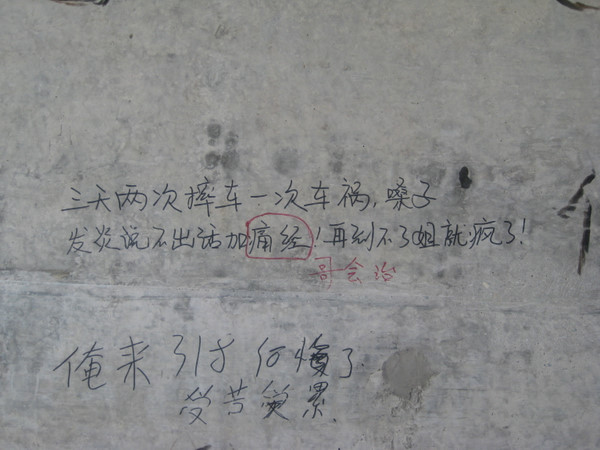 三天两次摔车一次车祸,嗓子
发炎说不出话加痛经!再到不了姐就疯了!
哥会治
俺来 318 何 了
受苦受累